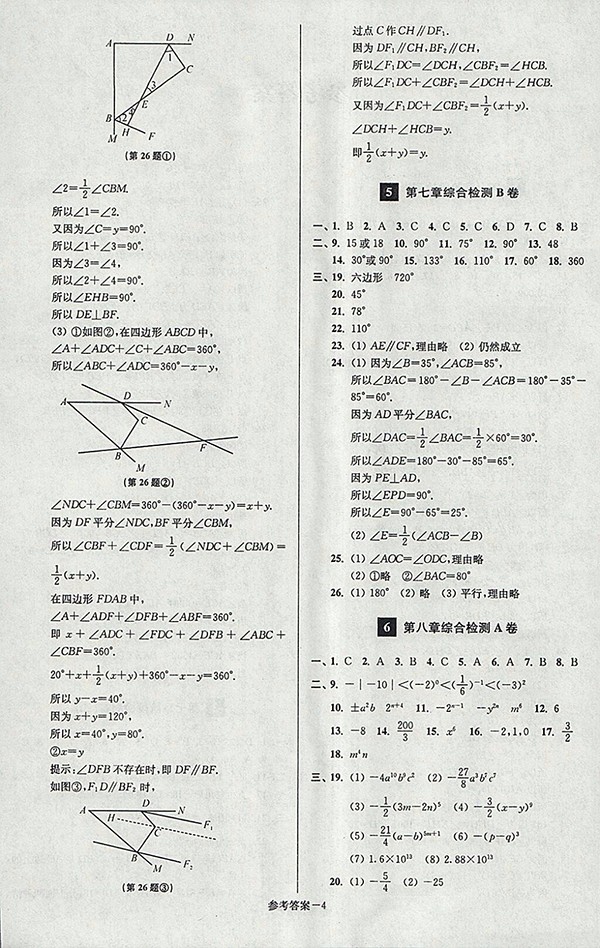 A D N
1
C
3
E
B 2 4
H F
M
(第26题①)
∠2=1/2∠CBM.
所以∠1=∠2.
又因为∠C=y=90°.
所以∠1+∠3=90°.
因为∠3=∠4,
所以∠2+∠4=90°.
所以∠EHB=90°.
所以 DE⊥BF.
(3) ①如图②,在四边形 ABCD 中,
∠A+∠ADC+∠C+∠ABC=360°,
所以∠ABC+∠ADC=360°-x-y,
A D N
C
B F
M
(第26题②)
∠NDC+∠CBM=360°-(360°-x-y)=x+y.
因为 DF 平分∠NDC,BF 平分∠CBM,
所以∠CBF+∠CDF=1/2(∠NDC+∠CBM)=
1/2(x+y).
在四边形 FDAB 中,
∠A+∠ADF+∠DFB+∠ABF=360°.
即 x+∠ADC+∠FDC+∠DFB+∠ABC+
∠CBF=360°.
20°+x+1/2(x+y)+360°-x-y=360°.
所以 y-x=40°.
因为 x+y=120°,
所以 x=40°,y=80°.
②x=y
提示:∠DFB 不存在时,即 DF∥BF.
如图③,F₁D∥BF₂ 时,
A D N
H
C F₁
B
M F₂
(第26题③)
过点 C 作 CH∥DF₁.
因为 DF₁∥CH,BF₂∥CH,
所以∠F₁DC=∠DCH,∠CBF₂=∠HCB.
所以∠F₁DC+∠CBF₂=∠DCH+∠HCB.
又因为∠F₁DC+∠CBF₂=1/2(x+y).
∠DCH+∠HCB=y.
即1/2(x+y)=y.
5 第七章综合检测 B 卷
一、1. B 2. A 3. C 4. C 5. C 6. D 7. C 8. B
二、9. 15或18 10. 90° 11. 75° 12. 90° 13. 48
14. 30°或90° 15. 133° 16. 110° 17. 60° 18. 360
三、19. 六边形 720°
20. 45°
21. 78°
22. 110°
23. (1) AE∥CF,理由略 (2) 仍然成立
24. (1) 因为∠B=35°,∠ACB=85°,
所以∠BAC=180°-∠B-∠ACB=180°-35°-
85°=60°.
因为 AD 平分∠BAC,
所以∠DAC=1/2∠BAC=1/2×60°=30°.
所以∠ADE=180°-30°-85°=65°.
因为 PE⊥AD,
所以∠EPD=90°.
所以∠E=90°-65°=25°.
(2) ∠E=1/2(∠ACB-∠B)
25. (1) ∠AOC=∠ODC,理由略
(2) ①略 ②∠BAC=80°
26. (1) 180° (2) 略 (3) 平行,理由略
6 第八章综合检测 A 卷
一、1. C 2. A 3. B 4. C 5. A 6. A 7. B 8. B
二、9. -|-10|<(-2)⁰<(1/6)⁻¹<(-3)²
10. ±a²b 2ⁿ⁺⁴ 11. -2ⁿ⁻¹ -y²ⁿ m⁶ 12. 6
13. -8 14. 200/3 15. x⁶ 16. -2,1,0 17. 3/2
18. m⁴n
三、19. (1) -4a¹⁰b⁹c² (2) -27/8a³b⁷c⁷
(3) -1/2(3m-2n)⁵ (4) -3/2(x-y)⁹
(5) -21/4(a-b)⁵ᵐ⁺¹ (6) -(p-q)³
(7) 1.6×10¹³ (8) 2.88×10¹³
20. (1) -5/4 (2) -25
参考答案-4